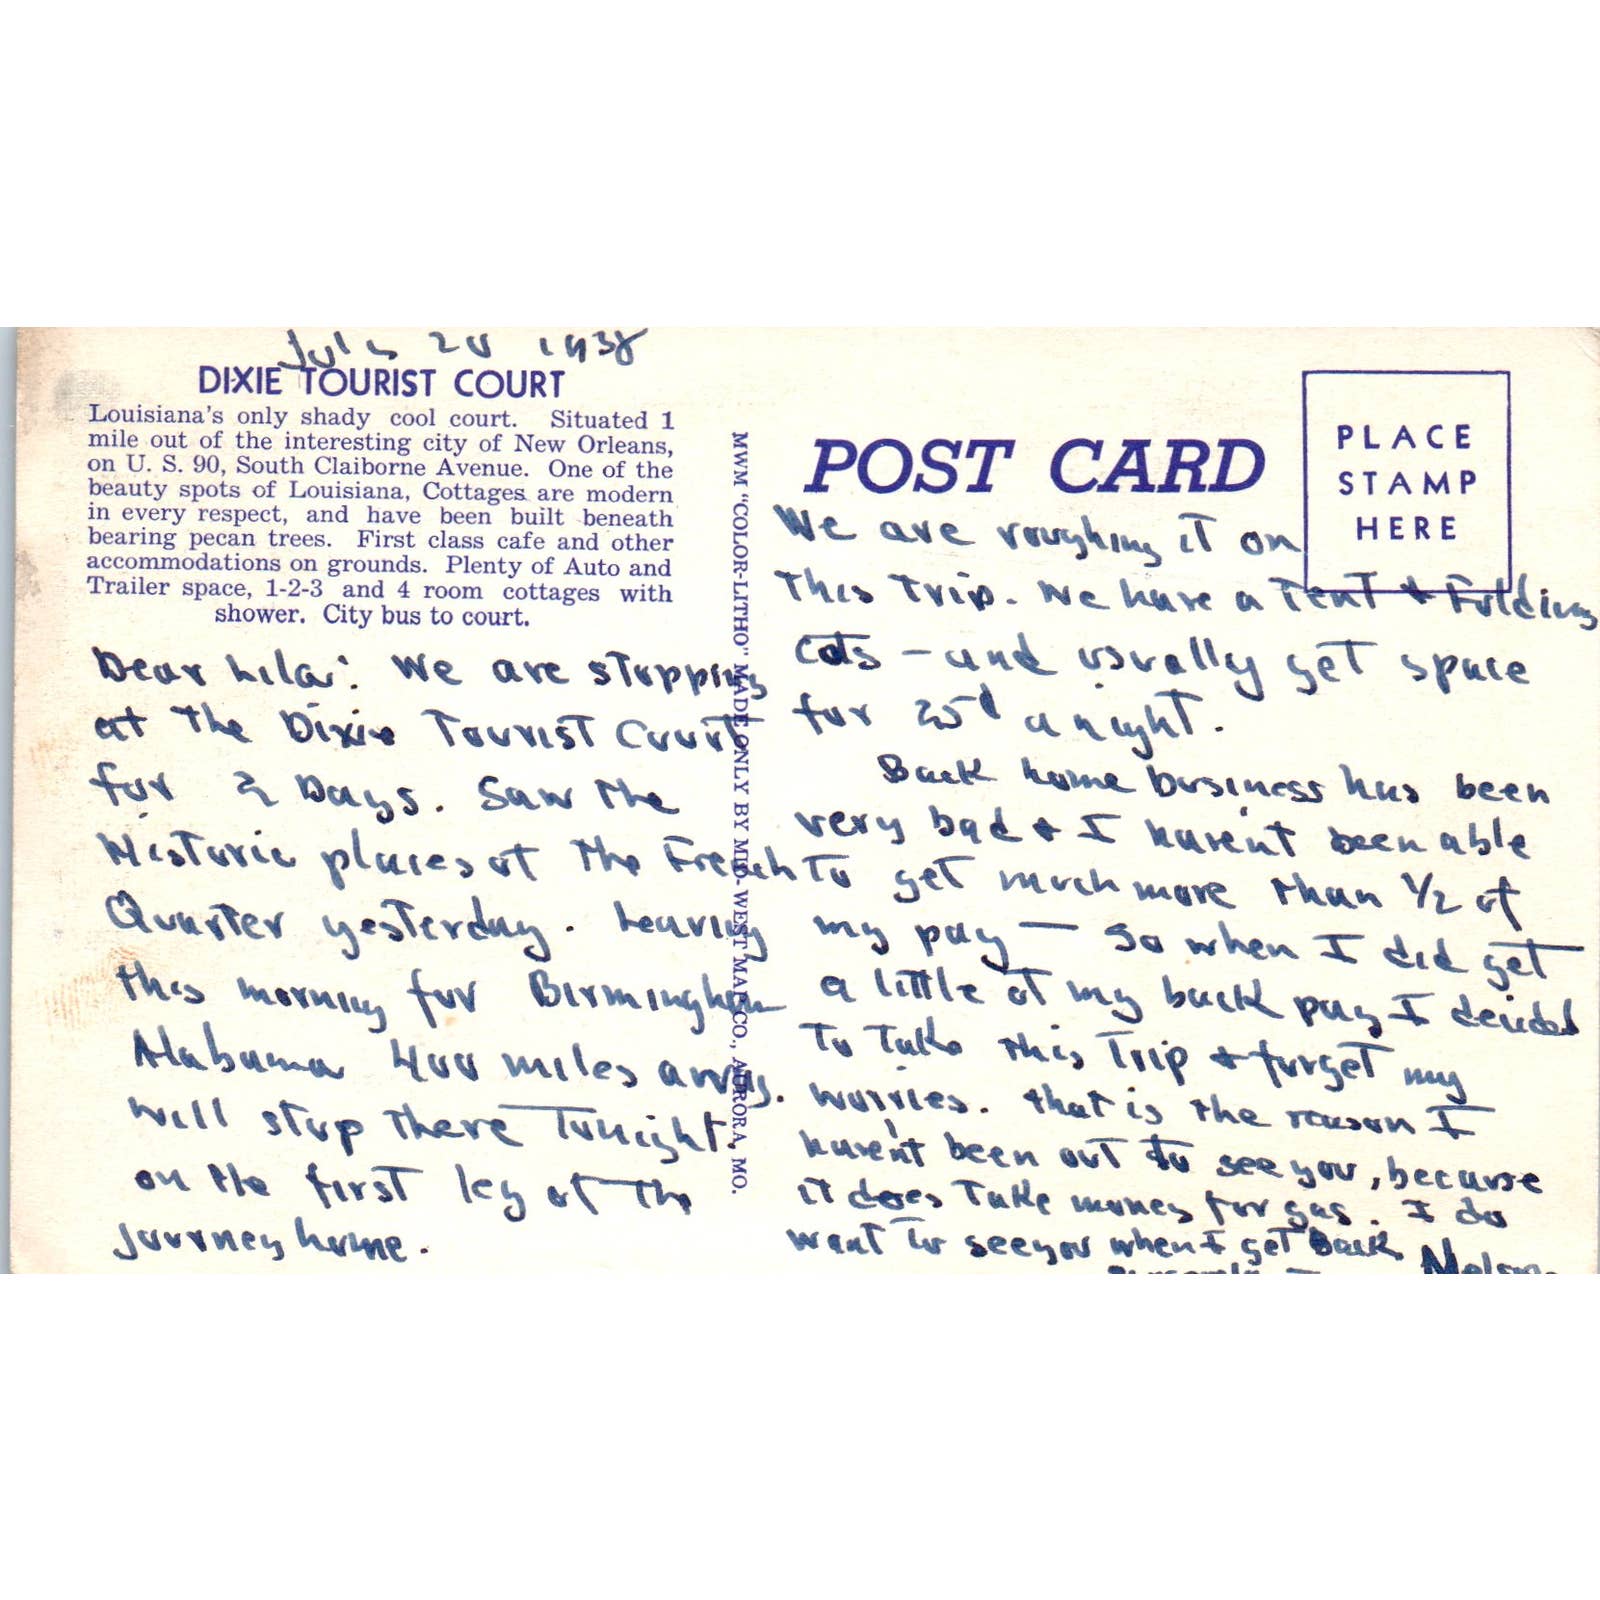 July 20 1938
DIXIE TOURIST COURT
Louisiana's only shady cool court. Situated 1
mile out of the interesting city of New Orleans,
on U. S. 90, South Claiborne Avenue. One of the
beauty spots of Louisiana, Cottages are modern
in every respect, and have been built beneath
bearing pecan trees. First class cafe and other
accommodations on grounds. Plenty of Auto and
Trailer space, 1-2-3 and 4 room cottages with
shower. City bus to court.
Dear Lila: We are stopping
at the Dixie Tourist Court
for 2 Days. Saw the
Historic places of the French
Quarter yesterday. Leaving
this morning for Birmingham
Alabama 400 miles away.
Will stop there Tonight.
on the first leg of the
journey home.
MWM "COLOR-LITHO" MADE ONLY BY MID-WEST MAP CO., AURORA, MO.
POST CARD
PLACE
STAMP
HERE
We are roughing it on
this trip. We have a Tent & Folding
cots - and usually get space
for 25¢ a night.
Back home business has been
very bad & I haven't been able
To get much more than 1/2 of
my pay — so when I did get
a little of my back pay I decided
To Take this Trip & forget my
worries. that is the reason I
haven't been out to see you, because
it does Take money for gas. I do
want to see you when I get Back.
Nelson